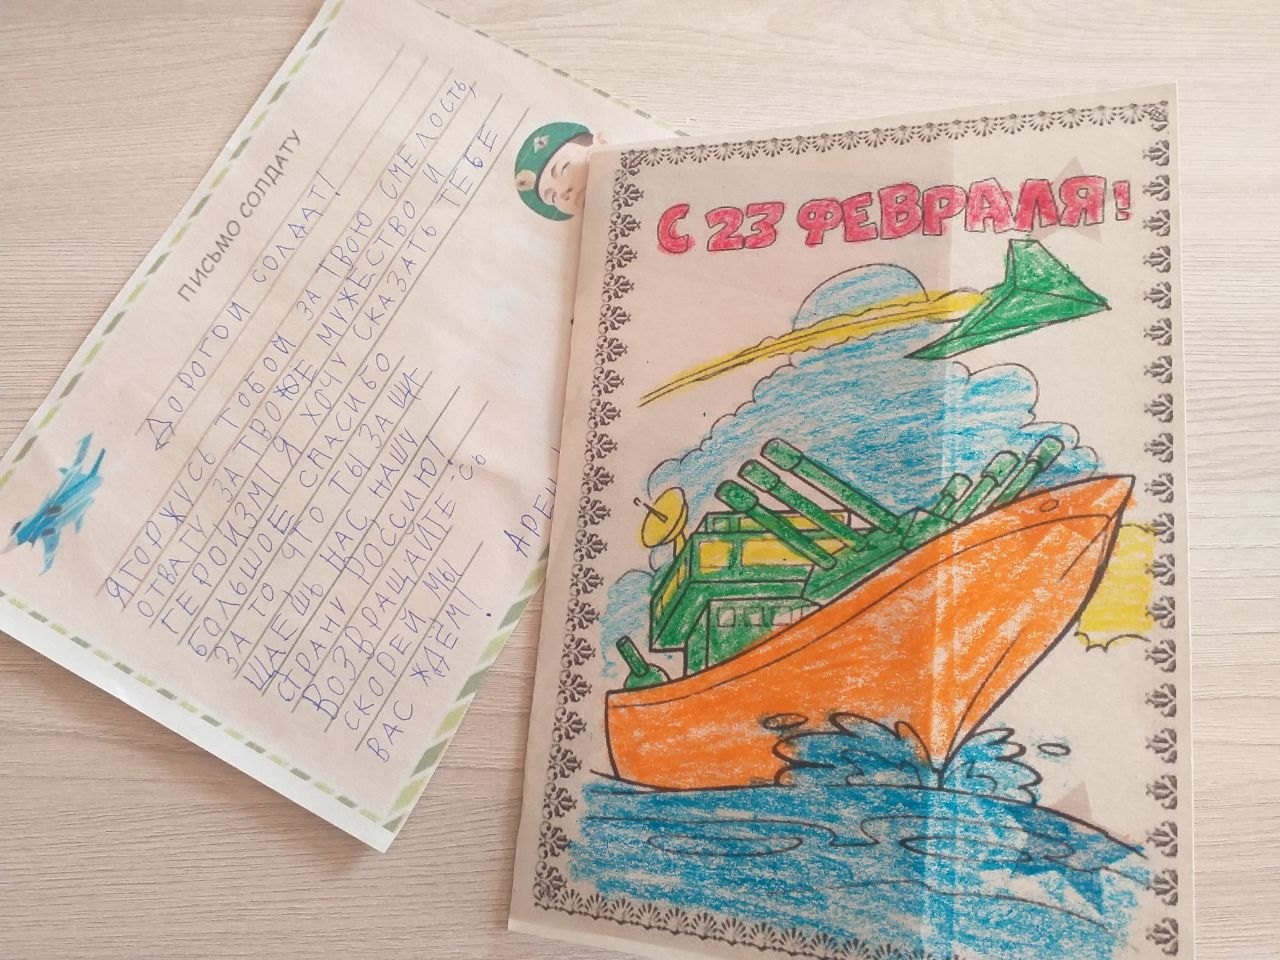 ПИСЬМО СОЛДАТУ
ДОРОГОЙ СОЛДАТ!
Я ГОРЖУСЬ ТОБОЙ ЗА ТВОЮ СМЕЛОСТЬ,
ОТВАГУ ЗА ТВОЮЁ МУЖЕСТВО И
ГЕРОИЗМ! Я ХОЧУ СКАЗАТЬ ТЕБЕ
БОЛЬШОЕ СПАСИБО
ЗА ТО ЧТО ТЫ ЗАЩИ-
ЩАЕШЬ НАС, НАШУ
СТРАНУ РОССИЮ!
ВОЗВРАЩАЙТЕ-СЬ
СКОРЕЙ МЫ
ВАС ЖДЁМ!
С 23 ФЕВРАЛЯ!